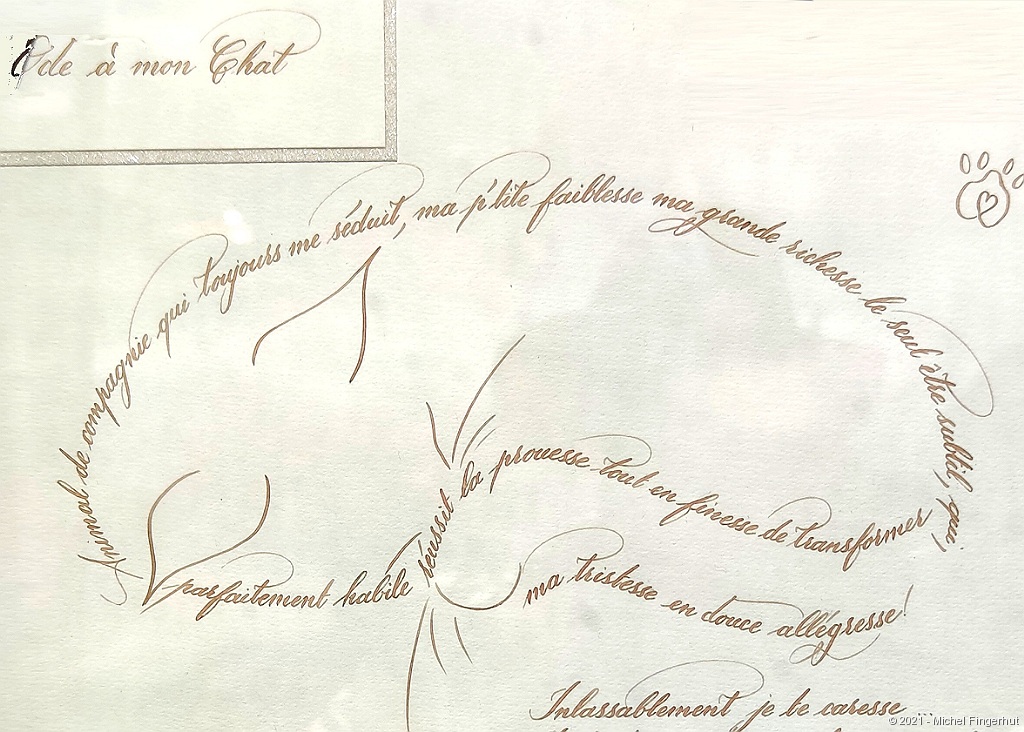 Ode à mon Chat
Animal de compagnie qui toujours me séduit, ma p'tite faiblesse ma grande richesse le seul être subtil, qui,
parfaitement habile réussit la prouesse tout en finesse de transformer
ma tristesse en douce allégresse!
Inlassablement je te caresse ...
© 2021 - Michel Fingerhut